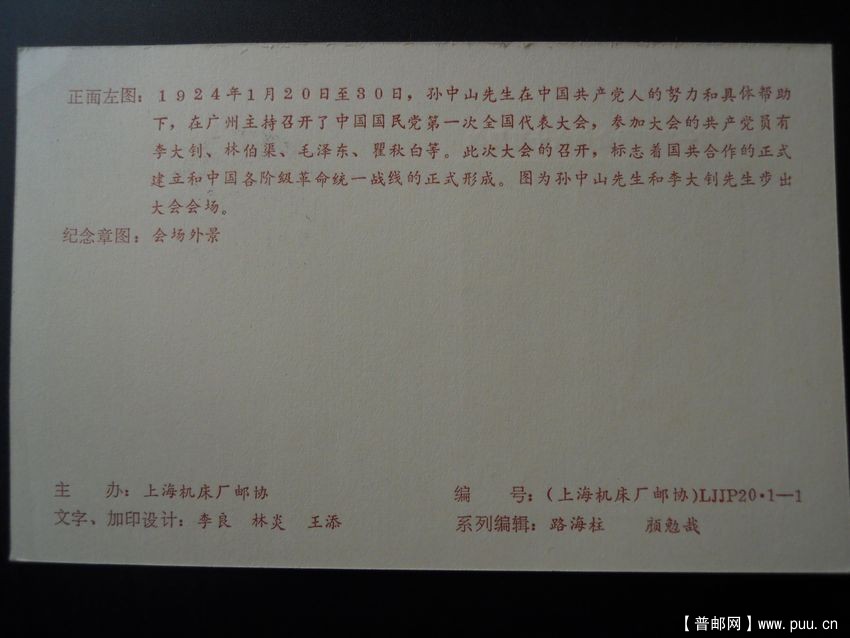 正面左图：1924年1月20日至30日，孙中山先生在中国共产党人的努力和具体帮助
下，在广州主持召开了中国国民党第一次全国代表大会，参加大会的共产党员有
李大钊、林伯渠、毛泽东、瞿秋白等。此次大会的召开，标志着国共合作的正式
建立和中国各阶级革命统一战线的正式形成。图为孙中山先生和李大钊先生步出
大会会场。
纪念章图：会场外景
主　办：上海机床厂邮协
编　号：(上海机床厂邮协)LJJP20·1—1
文字、加印设计：李良　林炎　王添
系列编辑：路海柱　颜勉哉
【普邮网】www.puu.cn